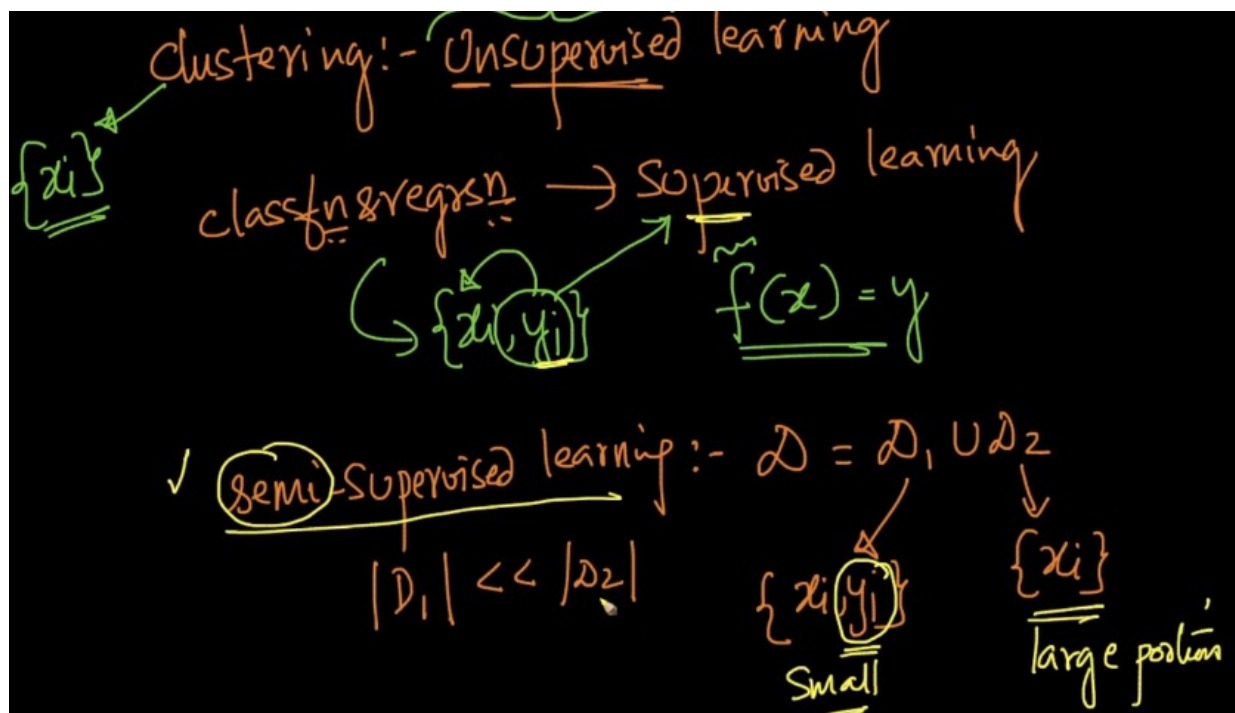 Clustering:- Unsupervised learning
{xi}
classfn & regrsn → Supervised learning
{xi, yi} f(x) = y
✓ semi-supervised learning:- D = D1 ∪ D2
|D1| << |D2| {xi, yi} {xi}
small large portion